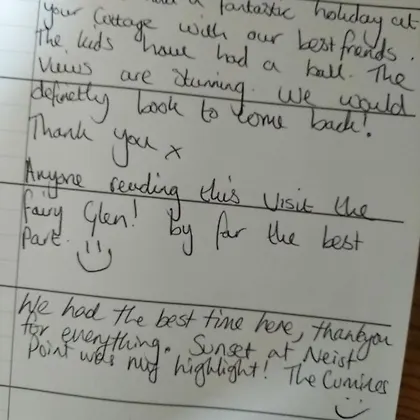 a fantastic holiday at
your Cottage with our best friends.
The kids have had a ball. The
views are stunning. We would
definetly book to come back!.
Thank you x
Anyone reading this Visit the
fairy Glen! by far the best
Part. ☺
We had the best time here, thankyou
for everything. Sunset at Neist
Point was my highlight! The